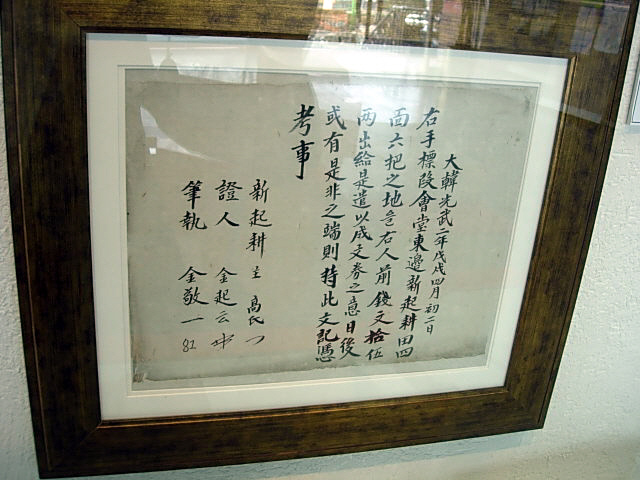 大韓光武二年戊戌四月初二日
右手標段會堂東邊新起耕田四
面六把之地乙右人前錢文拾伍
両出給是遣以成文券之意日後
或有是非之端則持此文記憑
考事
新起耕主 高氏
證人 金起云
筆執 金敬一